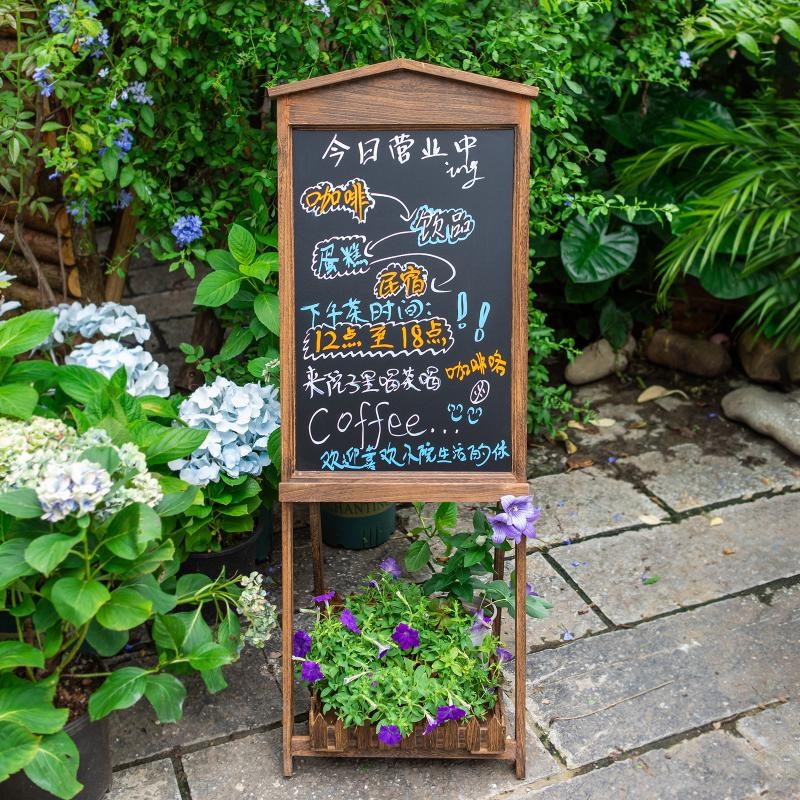 今日营业中
ing
咖啡
饮品
蛋糕
民宿
下午茶时间：!!
12点至18点
来院子里喝茶喝咖啡咯
Coffee...
欢迎喜欢小院生活的你
CHANTING